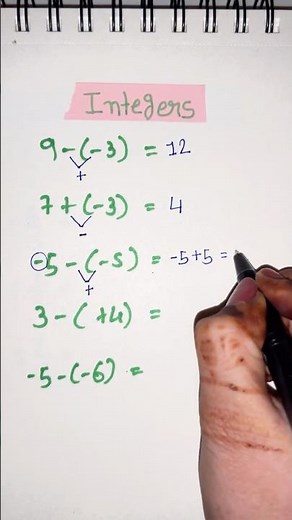 Integers
9 - (-3) = 12
+
7 + (-3) = 4
-
-5 - (-5) = -5 + 5 =
+
3 - (+4) =
-5 - (-6) =